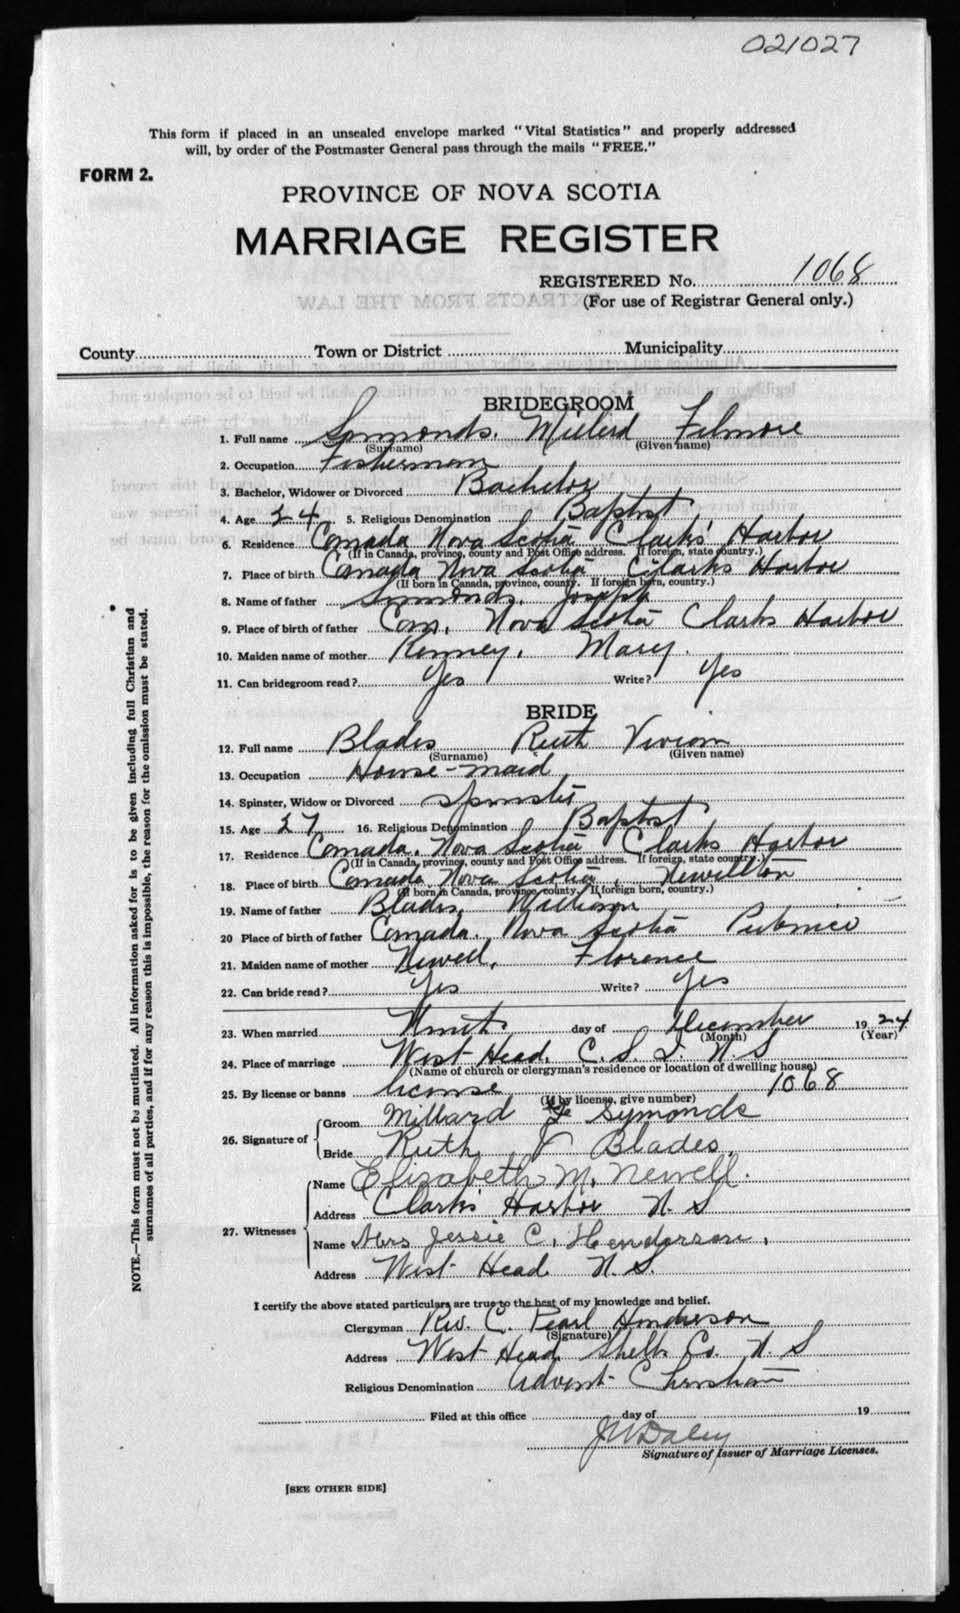 021027
This form if placed in an unsealed envelope marked "Vital Statistics" and properly addressed
will, by order of the Postmaster General pass through the mails "FREE."
FORM 2.
PROVINCE OF NOVA SCOTIA
MARRIAGE REGISTER
REGISTERED No. 1068
(For use of Registrar General only.)
County Town or District Municipality
BRIDEGROOM
1. Full name Symonds, Millard Filmore
(Surname) (Given name)
2. Occupation Fisherman
3. Bachelor, Widower or Divorced Bachelor
4. Age 24 5. Religious Denomination Baptist
6. Residence Canada Nova Scotia Clarks' Harbor
(If in Canada, province, county and Post Office address. If foreign, state country.)
7. Place of birth Canada Nova Scotia Clarks Harbor
(If born in Canada, province, county. If foreign born, country.)
8. Name of father Symonds, Joseph
9. Place of birth of father Can, Nova Scotia Clarks Harbor
10. Maiden name of mother Kenney, Mary
11. Can bridegroom read? Yes Write? Yes
BRIDE
12. Full name Blades Ruth Vivian
(Surname) (Given name)
13. Occupation House-maid
14. Spinster, Widow or Divorced Spinster
15. Age 27 16. Religious Denomination Baptist
17. Residence Canada. Nova Scotia Clarks Harbor
(If in Canada, province, county and Post Office address. If foreign, state country.)
18. Place of birth Canada Nova Scotia, Newellton
(If born in Canada, province, county. If foreign born, country.)
19. Name of father Blades, William
20 Place of birth of father Canada. Nova Scotia Pubnico
21. Maiden name of mother Newell, Florence
22. Can bride read? Yes Write? Yes
23. When married Ninth day of December 1924
(Month) (Year)
24. Place of marriage West Head, C. S. I. N S
(Name of church or clergyman's residence or location of dwelling house)
25. By license or banns license 1068
(If by license, give number)
26. Signature of Groom Millard F Symonds
Bride Ruth V Blades.
27. Witnesses Name Elizabeth M. Newell.
Address Clarks Harbor N. S
Name Mrs Jessie C. Henderson,
Address West Head N. S.
I certify the above stated particulars are true to the best of my knowledge and belief.
Clergyman Rev. C. Pearl Henderson
(Signature)
Address West Head Shelb. Co. N S
Religious Denomination Advent Christian
Filed at this office day of 19
J W Daley
Signature of Issuer of Marriage Licenses.
[SEE OTHER SIDE]
NOTE.—This form must not be mutilated. All information asked for is to be given including full Christian and
surnames of all parties, and if for any reason this is impossible, the reason for the omission must be stated.